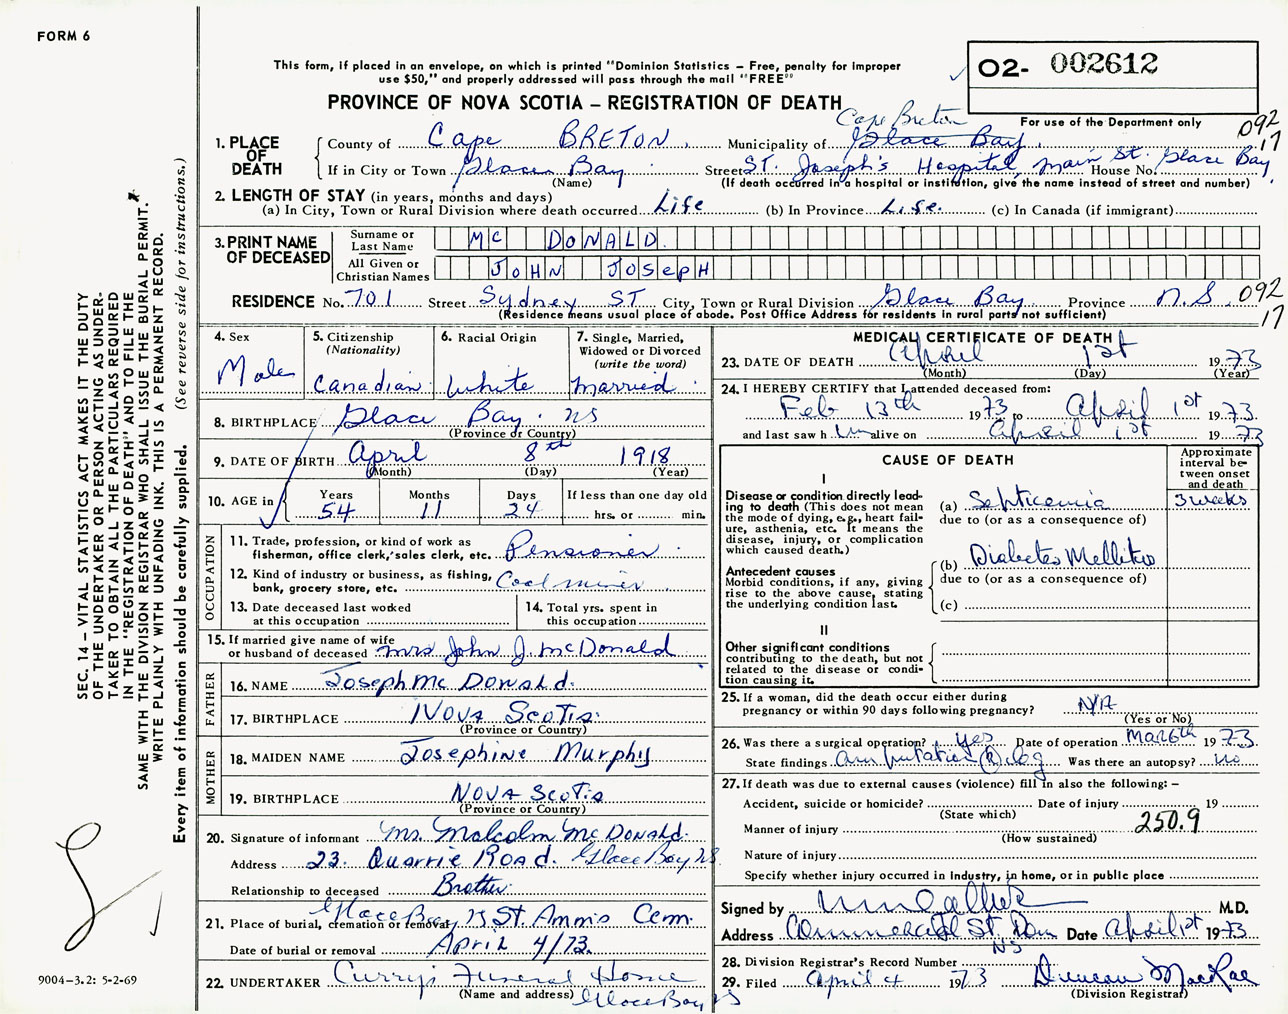 FORM 6
This form, if placed in an envelope, on which is printed "Dominion Statistics – Free, penalty for improper
use $50," and properly addressed will pass through the mail "FREE"
O2- 002612
PROVINCE OF NOVA SCOTIA – REGISTRATION OF DEATH
For use of the Department only
Cape Breton
092
17
1. PLACE OF DEATH
County of Cape BRETON Municipality of Glace Bay
If in City or Town Glace Bay Street ST. Joseph's Hospital, Main St. House No. Glace Bay
(Name) (If death occurred in a hospital or institution, give the name instead of street and number)
2. LENGTH OF STAY (in years, months and days)
(a) In City, Town or Rural Division where death occurred Life (b) In Province Life. (c) In Canada (if immigrant)
3. PRINT NAME OF DECEASED
Surname or Last Name MC DONALD
All Given or Christian Names JOHN JOSEPH
RESIDENCE No. 701 Street Sydney ST City, Town or Rural Division Glace Bay Province N.S.
092
17
(Residence means usual place of abode. Post Office Address for residents in rural parts not sufficient)
4. Sex
Male
5. Citizenship
(Nationality)
Canadian
6. Racial Origin
White
7. Single, Married,
Widowed or Divorced
(write the word)
Married
8. BIRTHPLACE Glace Bay. NS
(Province or Country)
9. DATE OF BIRTH April 8th 1918
(Month) (Day) (Year)
10. AGE in
Years Months Days If less than one day old
54 11 24 hrs. or min.
OCCUPATION
11. Trade, profession, or kind of work as
fisherman, office clerk, sales clerk, etc. Pensioner
12. Kind of industry or business, as fishing,
bank, grocery store, etc. Coal miner
13. Date deceased last worked
at this occupation
14. Total yrs. spent in
this occupation
15. If married give name of wife
or husband of deceased Mrs John J. McDonald
FATHER
16. NAME Joseph Mc Donald.
17. BIRTHPLACE Nova Scotia
(Province or Country)
MOTHER
18. MAIDEN NAME Josephine Murphy
19. BIRTHPLACE Nova Scotia
(Province or Country)
20. Signature of informant Mr. Malcolm McDonald.
Address 23 Quarrie Road. Glace Bay NS
Relationship to deceased Brother
21. Place of burial, cremation or removal Glace Bay NS St. Ann's Cem.
Date of burial or removal April 4/73.
22. UNDERTAKER Curry's Funeral Home
(Name and address) Glace Bay NS
MEDICAL CERTIFICATE OF DEATH
23. DATE OF DEATH April 1st 1973
(Month) (Day) (Year)
24. I HEREBY CERTIFY that I attended deceased from:
Feb 13th 1973 to April 1st 1973
and last saw h im alive on April 1st 1973
CAUSE OF DEATH
Approximate
interval be-
tween onset
and death
I
Disease or condition directly lead-
ing to death (This does not mean
the mode of dying, e.g., heart fail-
ure, asthenia, etc. It means the
disease, injury, or complication
which caused death.)
(a) Septicemia 3 weeks
due to (or as a consequence of)
Antecedent causes
Morbid conditions, if any, giving
rise to the above cause, stating
the underlying condition last.
(b) Diabetes Mellitus
due to (or as a consequence of)
(c)
II
Other significant conditions
contributing to the death, but not
related to the disease or condi-
tion causing it.
25. If a woman, did the death occur either during
pregnancy or within 90 days following pregnancy? N/A
(Yes or No)
26. Was there a surgical operation? Yes Date of operation Mar 6th 1973
State findings amputation (R) leg Was there an autopsy? no
27. If death was due to external causes (violence) fill in also the following: –
Accident, suicide or homicide? Date of injury 19
(State which)
Manner of injury 250.9
(How sustained)
Nature of injury
Specify whether injury occurred in industry, in home, or in public place
Signed by M.D.
Address Commercial St. Dom NS Date April 1st 1973
28. Division Registrar's Record Number
29. Filed April 4 1973 Duncan MacRae
(Division Registrar)
SEC. 14 – VITAL STATISTICS ACT MAKES IT THE DUTY
OF THE UNDERTAKER OR PERSON ACTING AS UNDER-
TAKER TO OBTAIN ALL THE PARTICULARS REQUIRED
IN THE "REGISTRATION OF DEATH" AND TO FILE THE
SAME WITH THE DIVISION REGISTRAR WHO SHALL ISSUE THE BURIAL PERMIT.
WRITE PLAINLY WITH UNFADING INK. THIS IS A PERMANENT RECORD.
Every item of information should be carefully supplied. (See reverse side for instructions.)
9004–3.2: 5-2-69